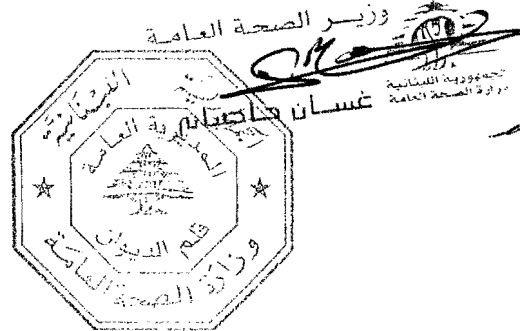 وزير الصحة العامة
الجمهورية اللبنانية
وزارة الصحة العامة
غسان حاصباني
الجمهورية اللبنانية
المديرية العامة
قلم الديوان
وزارة الصحة العامة